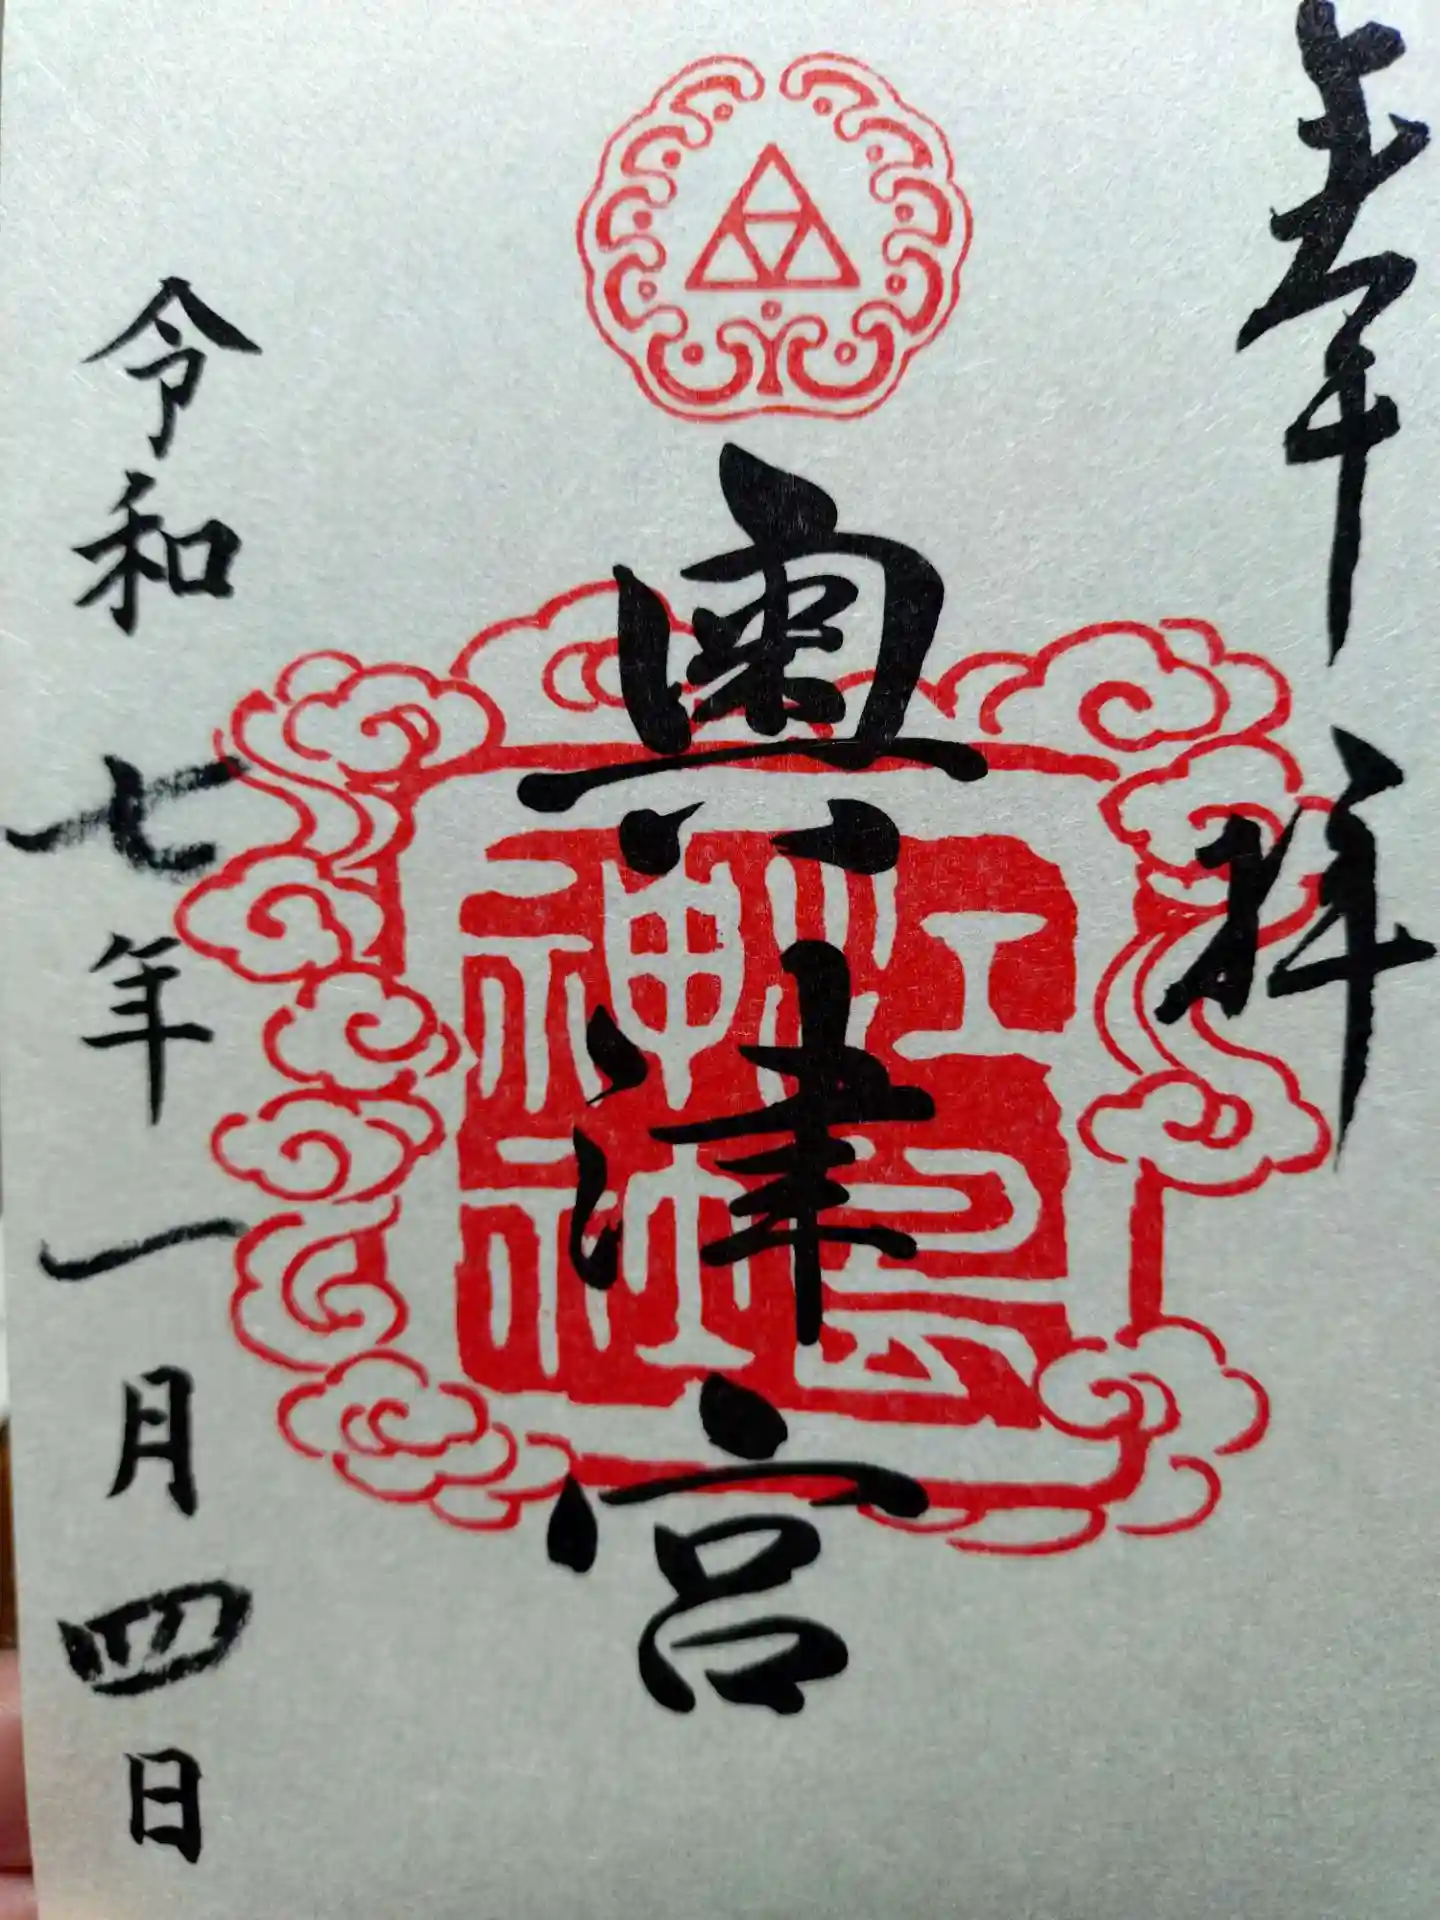 奉拝
奥津宮
江島神社
令和七年一月四日